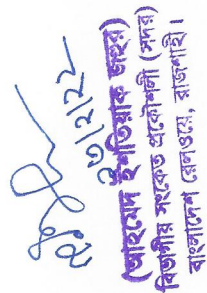 ২৩/২/২২
(আহমেদ ইশতিয়াক জহুর)
বিভাগীয় সংকেত প্রকৌশলী (সদর)
বাংলাদেশ রেলওয়ে, রাজশাহী।